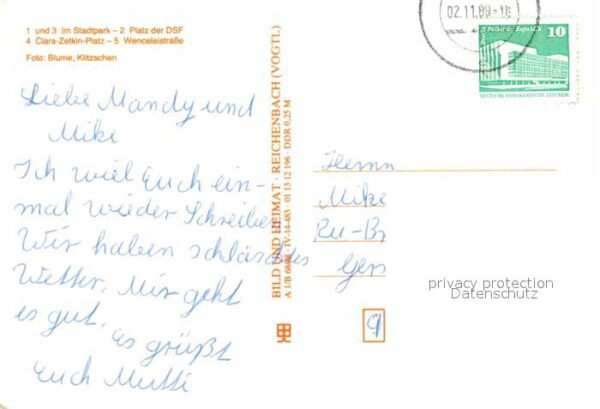 1 und 3 Im Stadtpark – 2 Platz der DSF
4 Clara-Zetkin-Platz – 5 Wenceleistraße
Foto: Blume, Klitzschen
Liebe Mandy und
Mike
Ich wiel Euch ein-
mal wieder Schreiben
Wir haben schlächtes
Wetter. Mir geht
es gut.
Es grüßt
Euch Mutti
BILD UND HEIMAT · REICHENBACH (VOGTL)
A 1/B IV-14-483 · 01 13 12 196 · DDR 0,25 M
02.11.89-18
Berlin, Palast der Republik
10
DEUTSCHE DEMOKRATISCHE REPUBLIK
Herrn
Mike
Ger
privacy protection
Datenschutz